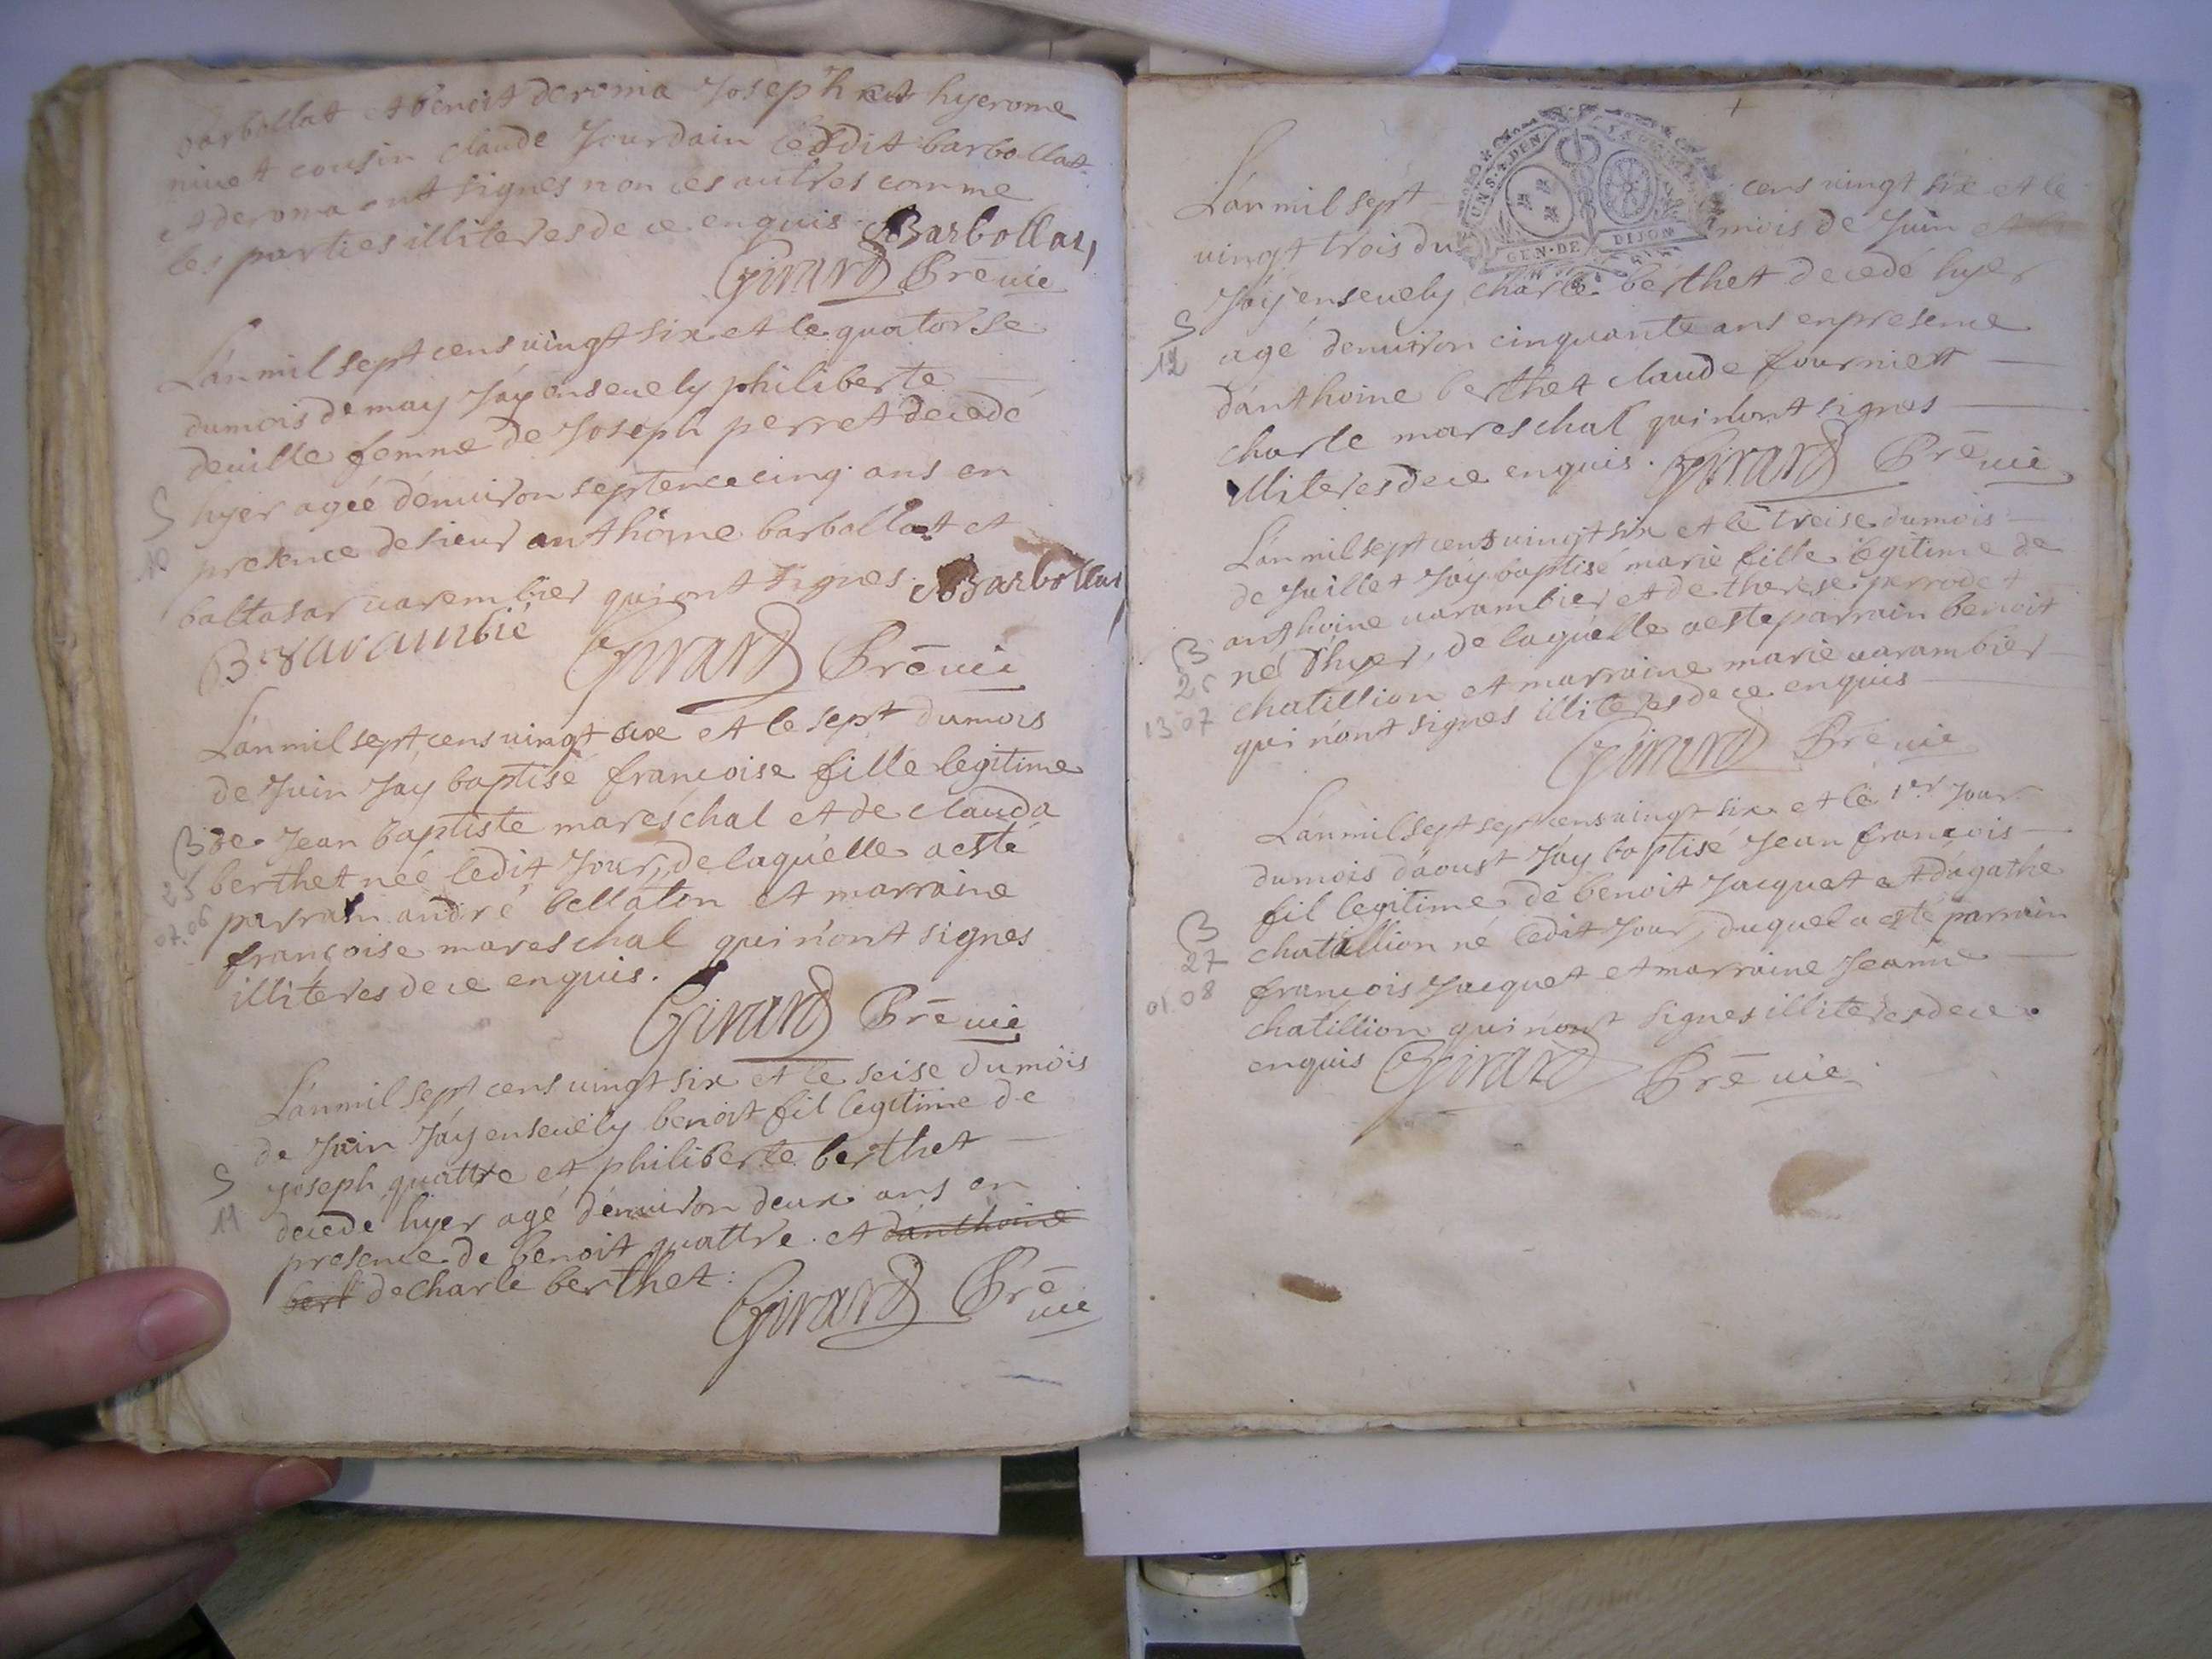 barbollat et benoit deroma Joseph et hyerome
nivet cousin claude Jourdain ledit barbollat
et deroma ont signes non les autres comme
les parties illiteres de ce enquis Barbollat
Girard Prē vic
L'an mil sept cens vingt six et le quatorse
du mois de may J'ay enseuely philiberte
deville femme de Joseph perret decedé
S hyer agée d'environ septente cinq ans en
10 presence de sieur anthoine barbollat et
baltasar varembier qui ont signes Barbollat
B Varambié Girard Prē vic
L'an mil sept cens vingt six et le sept du mois
de Juin J'ay baptisé francoise fille legitime
B de Jean baptiste mareschal et de clauda
25 berthet née ledit Jour, de laquelle a esté
07.06 parrain andré bellaton et marraine
françoise mareschal qui n'ont signes
illiteres de ce enquis.
Girard Prē vic
L'an mil sept cens vingt six et le seise du mois
de Juin J'ay enseuely benoit fil legitime de
S Joseph quattre et philiberte berthet
11 decedé hyer agé d'environ deux ans en
presence de benoit quattre et d'anthoine
bert de charle berthet:
Girard Prē
vic
L'an mil sept cens vingt six et le
vingt trois du mois de Juin
J'ay enseuely charle berthet decedé hyer
S
12 agé d'environ cinquante ans en presence
d'anthoine berthet claude fourniett
charle mareschal qui n'ont signes
illiteres de ce enquis. Girard Prē vic
L'an mil sept cens vingt six et le treise du mois
de Juillet J'ay baptisé marie fille legitime de
B anthoine varambier et de therese perrodet
26 né d'hyer, de laquelle a esté parrain benoit
13 07 chatillion et marraine marie varambier
qui n'ont signes illiteres de ce enquis
Girard Prē vic
L'an mil sept sept cens vingt six et le 1er Jour
du mois d'aoust J'ay baptisé Jean françois
B fil legitime de benoit Jacquet et d'agathe
27 chatillion né ledit Jour, duquel a esté parrain
01.08 françois Jacquet et marraine Jeanne
chatillion qui n'ont signes illiteres de ce
enquis Girard Prē vic
GEN·DE DIJON